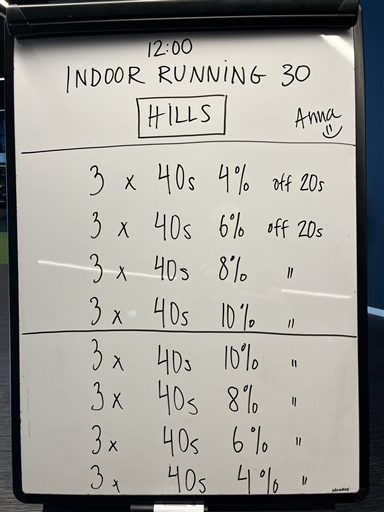 12:00
INDOOR RUNNING 30
HILLS
Anna
3 x 40s 4% off 20s
3 x 40s 6% off 20s
3 x 40s 8% "
3 x 40s 10% "
3 x 40s 10% "
3 x 40s 8% "
3 x 40s 6% "
3 x 40s 4% "